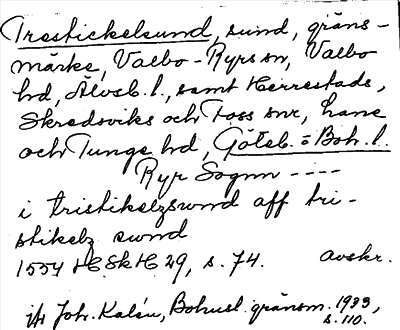 Trestickelsund, sund, gräns-
märke, Valbo-Ryrs sn, Valbo
hd, Älvsb. l., samt Herrestads,
Skredsviks och Foss snr, Lane
och Tunge hd, Göteb. o Boh. l.
Ryr Sognn ----
i tristikelzsund aff tri-
stikelz sund
1554 HSkH 29, s. 74. avskr.
jfr Joh. Kalén, Bohusl. gränsm. 1933,
s. 110.